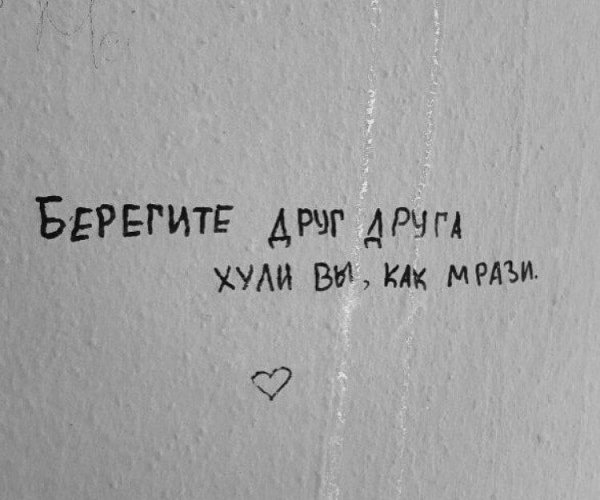 БЕРЕГИТЕ ДРУГ ДРУГА
ХУЛИ ВЫ, КАК МРАЗИ.